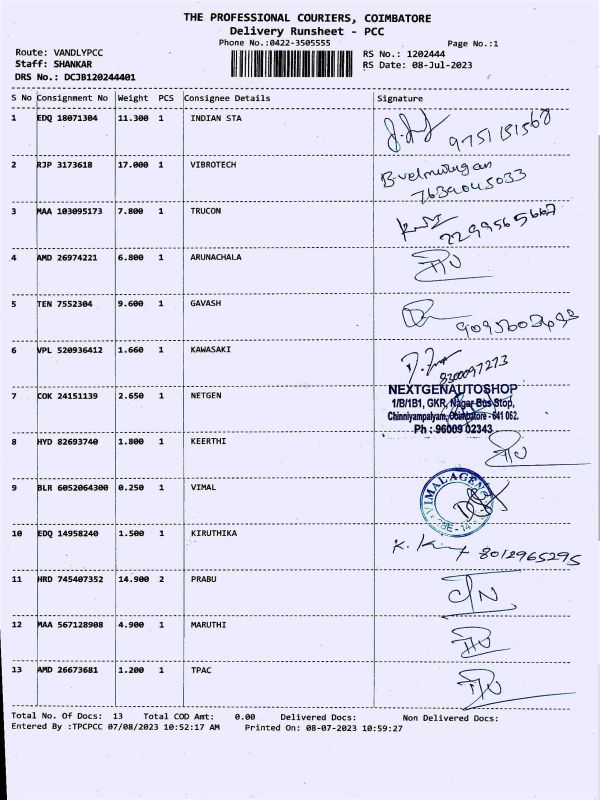 THE PROFESSIONAL COURIERS, COIMBATORE
Delivery Runsheet - PCC
Phone No.:0422-3505555
Page No.:1
Route: VANDLYPCC
RS No.: 1202444
Staff: SHANKAR
RS Date: 08-Jul-2023
DRS No.: DCJB120244401
S No Consignment No Weight PCS Consignee Details Signature
1 EDQ 18071304 11.300 1 INDIAN STA
9751151568
2 RJP 3173618 17.000 1 VIBROTECH B.velmurugan
7639045033
3 MAA 103095173 7.800 1 TRUCON
4 AMD 26974221 6.800 1 ARUNACHALA
5 TEN 7552304 9.600 1 GAVASH
6 VPL 520936412 1.660 1 KAWASAKI
8300097273
7 COK 24151139 2.650 1 NETGEN NEXTGENAUTOSHOP
1/B/1B1, GKR, Nagar Bus Stop,
Chinniyampalyam, Coimbatore - 641 062.
Ph : 96009 02343
8 HYD 82693740 1.800 1 KEERTHI
9 BLR 6052064300 0.250 1 VIMAL VIMAL AGEN
10 EDQ 14958240 1.500 1 KIRUTHIKA
8012965295
11 HRD 745407352 14.900 2 PRABU
12 MAA 567128908 4.900 1 MARUTHI
13 AMD 26673681 1.200 1 TPAC
Total No. Of Docs: 13 Total COD Amt: 0.00 Delivered Docs: Non Delivered Docs:
Entered By :TPCPCC 07/08/2023 10:52:17 AM Printed On: 08-07-2023 10:59:27